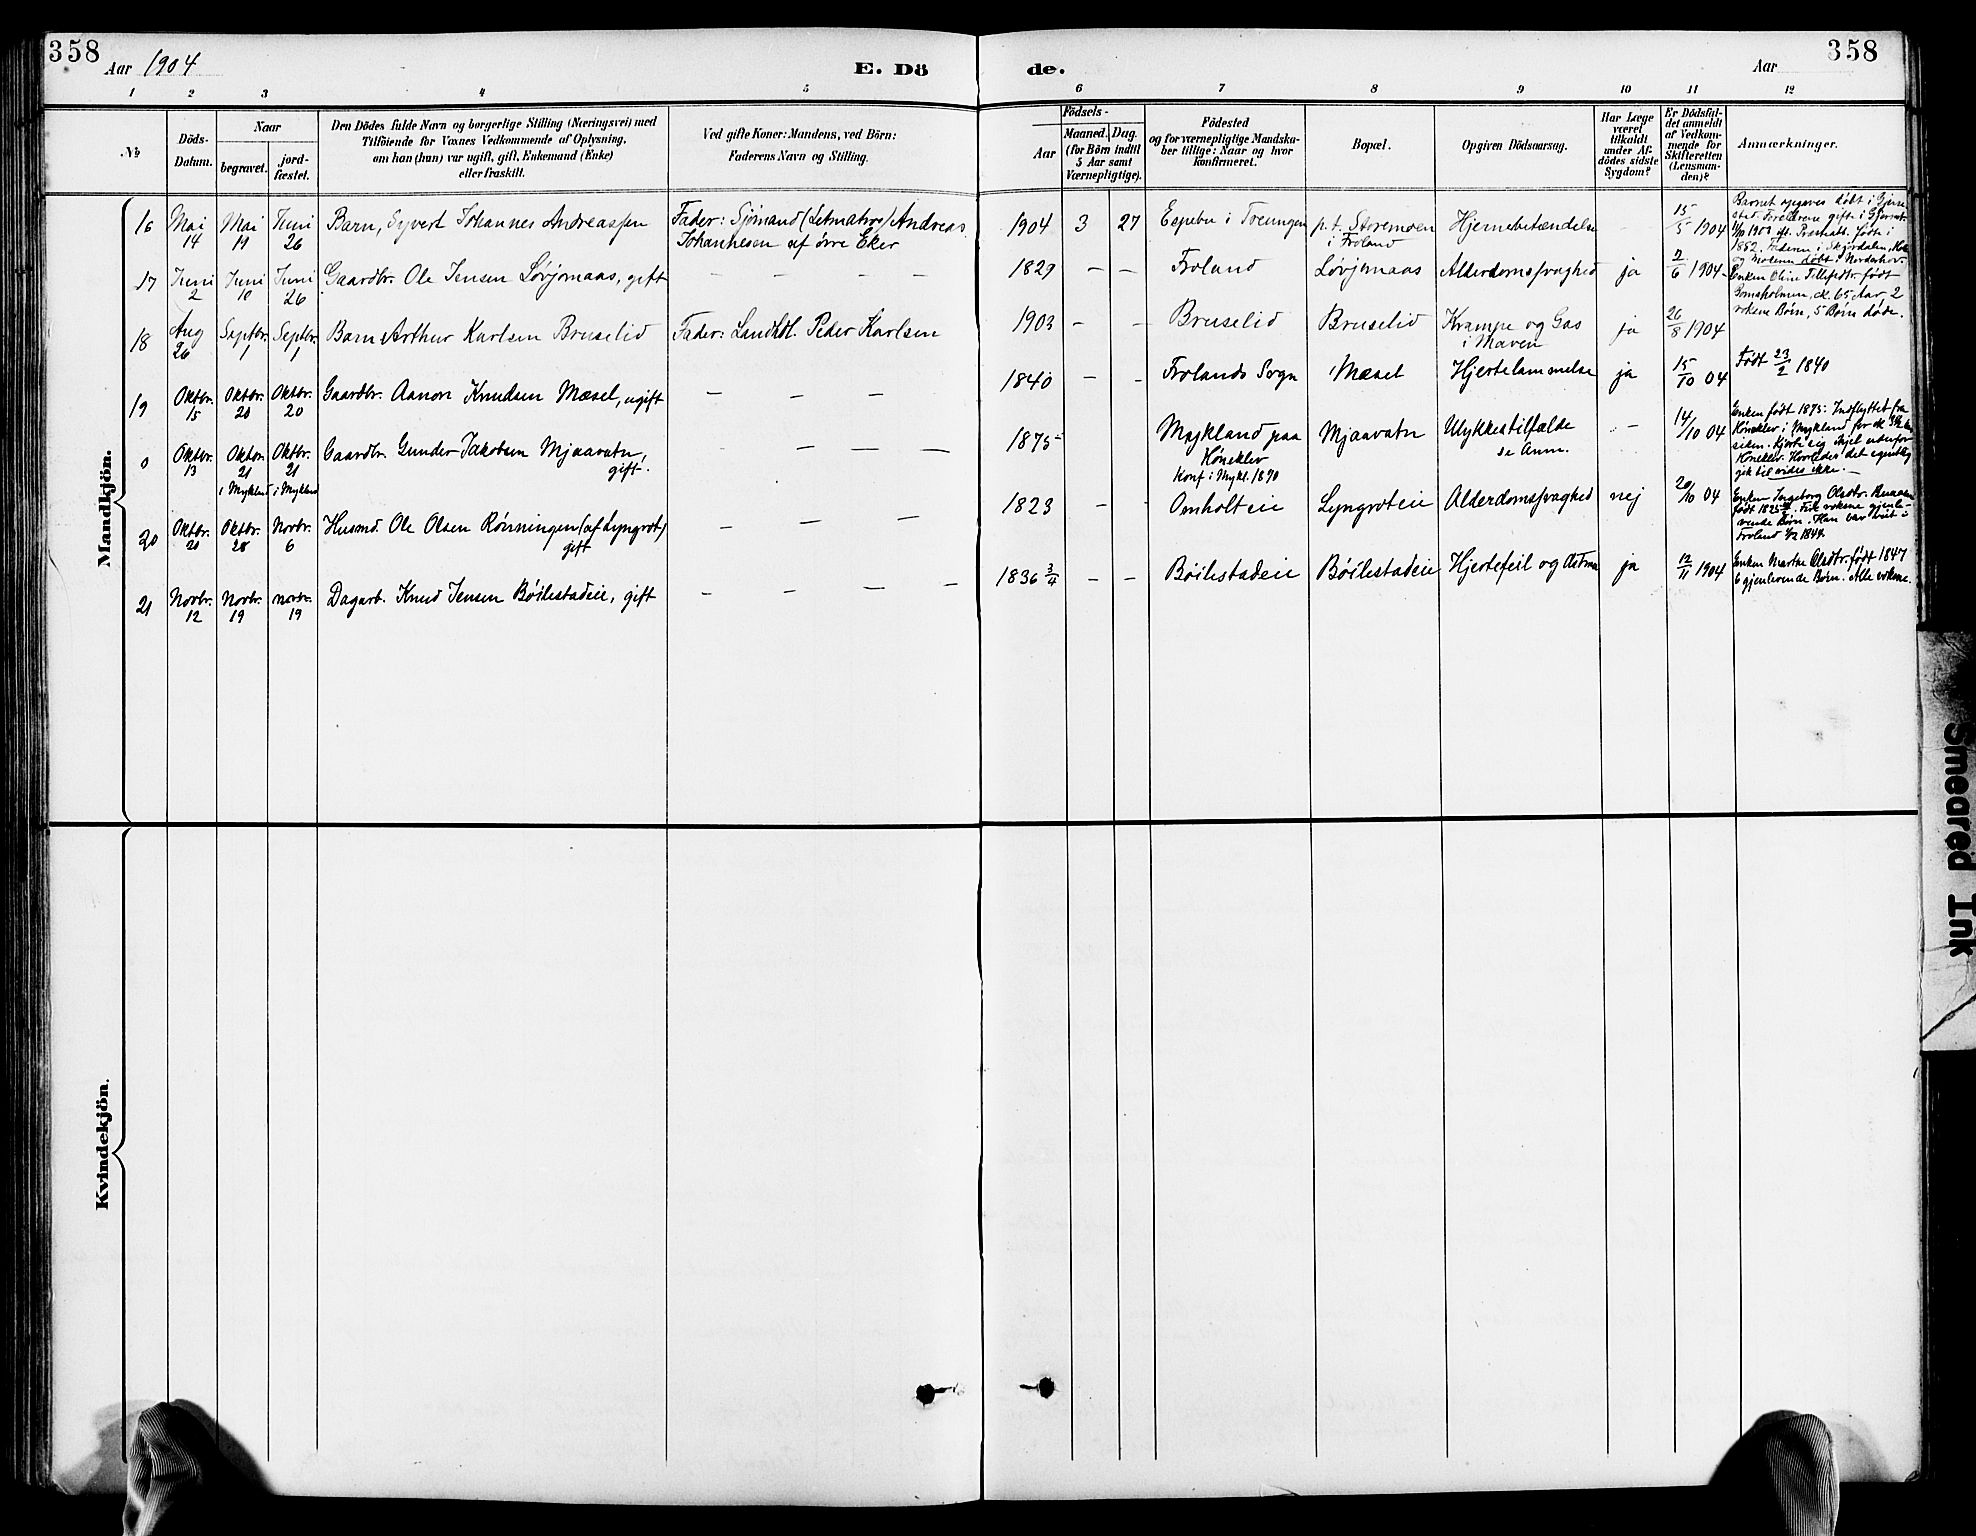 358
Aar 1904
E. Dö
de.
Aar
358
1 2 3 4 5 6 7 8 9 10 11 12
№
Döds-
Datum.
Naar
begravet.
jord-
fæstet.
Den Dödes fulde Navn og borgerlige Stilling (Næringsvei) med
Tilföiende for Voxnes Vedkommende af Oplysning,
om han (hun) var ugift, gift, Enkemand (Enke)
eller fraskilt.
Ved gifte Koner: Mandens, ved Börn:
Faderens Navn og Stilling.
Födsels-
Aar
Maaned. Dag.
(for Börn indtil
5 Aar samt
Værnepligtige).
Födested
og for værnepligtige Mandska-
ber tillige: Naar og hvor
konfirmeret.
Bopæl.
Opgiven Dödsaarsag.
Har Læge
været
tilkaldt
under Af-
dödes sidste
Sygdom?
Er Dödsfal-
det anmeldt
af Vedkom-
mende for
Skifteretten
(Lensman-
den)?
Anmærkninger.
Mandkjön.
16 Mai 14 Mai 19 Juni 26 Barn, Syvert Johannes Andreassen
Fader: Sjömand (Letmatros) Andreas
Johannesen af övre Eker
1904 3 27 Espebu i Treungen p.t. Storemoen
i Froland
Hjernebetændelse - 15/5 1904
Barnet opgives döbt i Gjerre-
stad. Forældrene gift i
1882. Faderen i Skjördalen,
og Moderen döbt i Norderhov.
17 Juni 2 Juni 10 Juni 26 Gaardbr. Ole Jensen Lövjomaas, gift — — — —
1829 — — Froland Lövjomaas Alderdomssvaghed ja 2/6 1904
Enken Oline Tellefsdtr. född
Bomsholmen, ck. 65 Aar, 2
voksne Börn, 5 Börn döde.
18 Aug 26 Septbr. 1 Septbr. 1 Barn Arthur Karlsen Bruselid
Fader: Landhdl. Peder Karlsen
1903 — — Bruselid Bruselid Krampe og Gas
i Maven
ja 26/8 1904
19 Oktbr. 15 Oktbr. 20 Oktbr. 20 Gaardbr. Aanon Knudsen Mæsel, ugift — — —
1840 — — Frolands Sogn Mæsel Hjertelammelse ja 15/10 04
Född 23/2 1840
0 Oktbr. 13 Oktbr. 21 i Mykland Oktbr. 21 i Mykland Gaardbr. Gunder Jakobsen Mjaavatn,
gift. — — —
1875 Mykland paa
Höneklev
Konf i Mykl. 1890
Mjaavatn Ulykkestilfælde
se Anm.
— 14/10 04
Enken født 1875: Indflyttet fra
Höneklev i Mykland for ck 3½
siden. Skjöt sig ihjel udenfor
Höneklev. Hvorledes det egentlig
gik til vides ikke.—
20 Oktbr. 20 Oktbr. 28 Novbr. 6 Husmd. Ole Olsen Rönningen (af Lyngrot)
gift — — —
1823 — — Omholteie Lyngroteie Alderdomssvaghed nej 20/10 04
Enken Ingeborg Olsdtr.
født 1825. voksne gjenle-
vende Börn. Han var i
Froland 1849.
21 Novbr. 12 Novbr. 19 Novbr. 19 Dagarb. Knud Jensen Böilestadeie, gift — — — — —
1836 3/4 — — Böilestadeie Böilestadeie Hjertefeil og Astma ja 12/11 1904
Enken Marthe Olsdtr. født 1847
6 gjenlevende Börn. Alle voksne.
Kvindekjön.
Smeared Ink